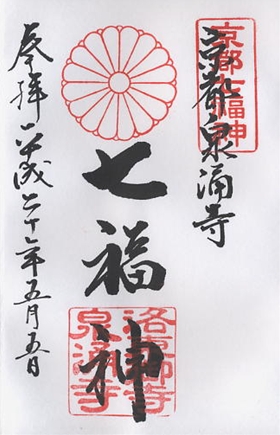 京都七福神
京都泉涌寺
七福神
泉涌寺
奉拝 平成二十一年五月五日